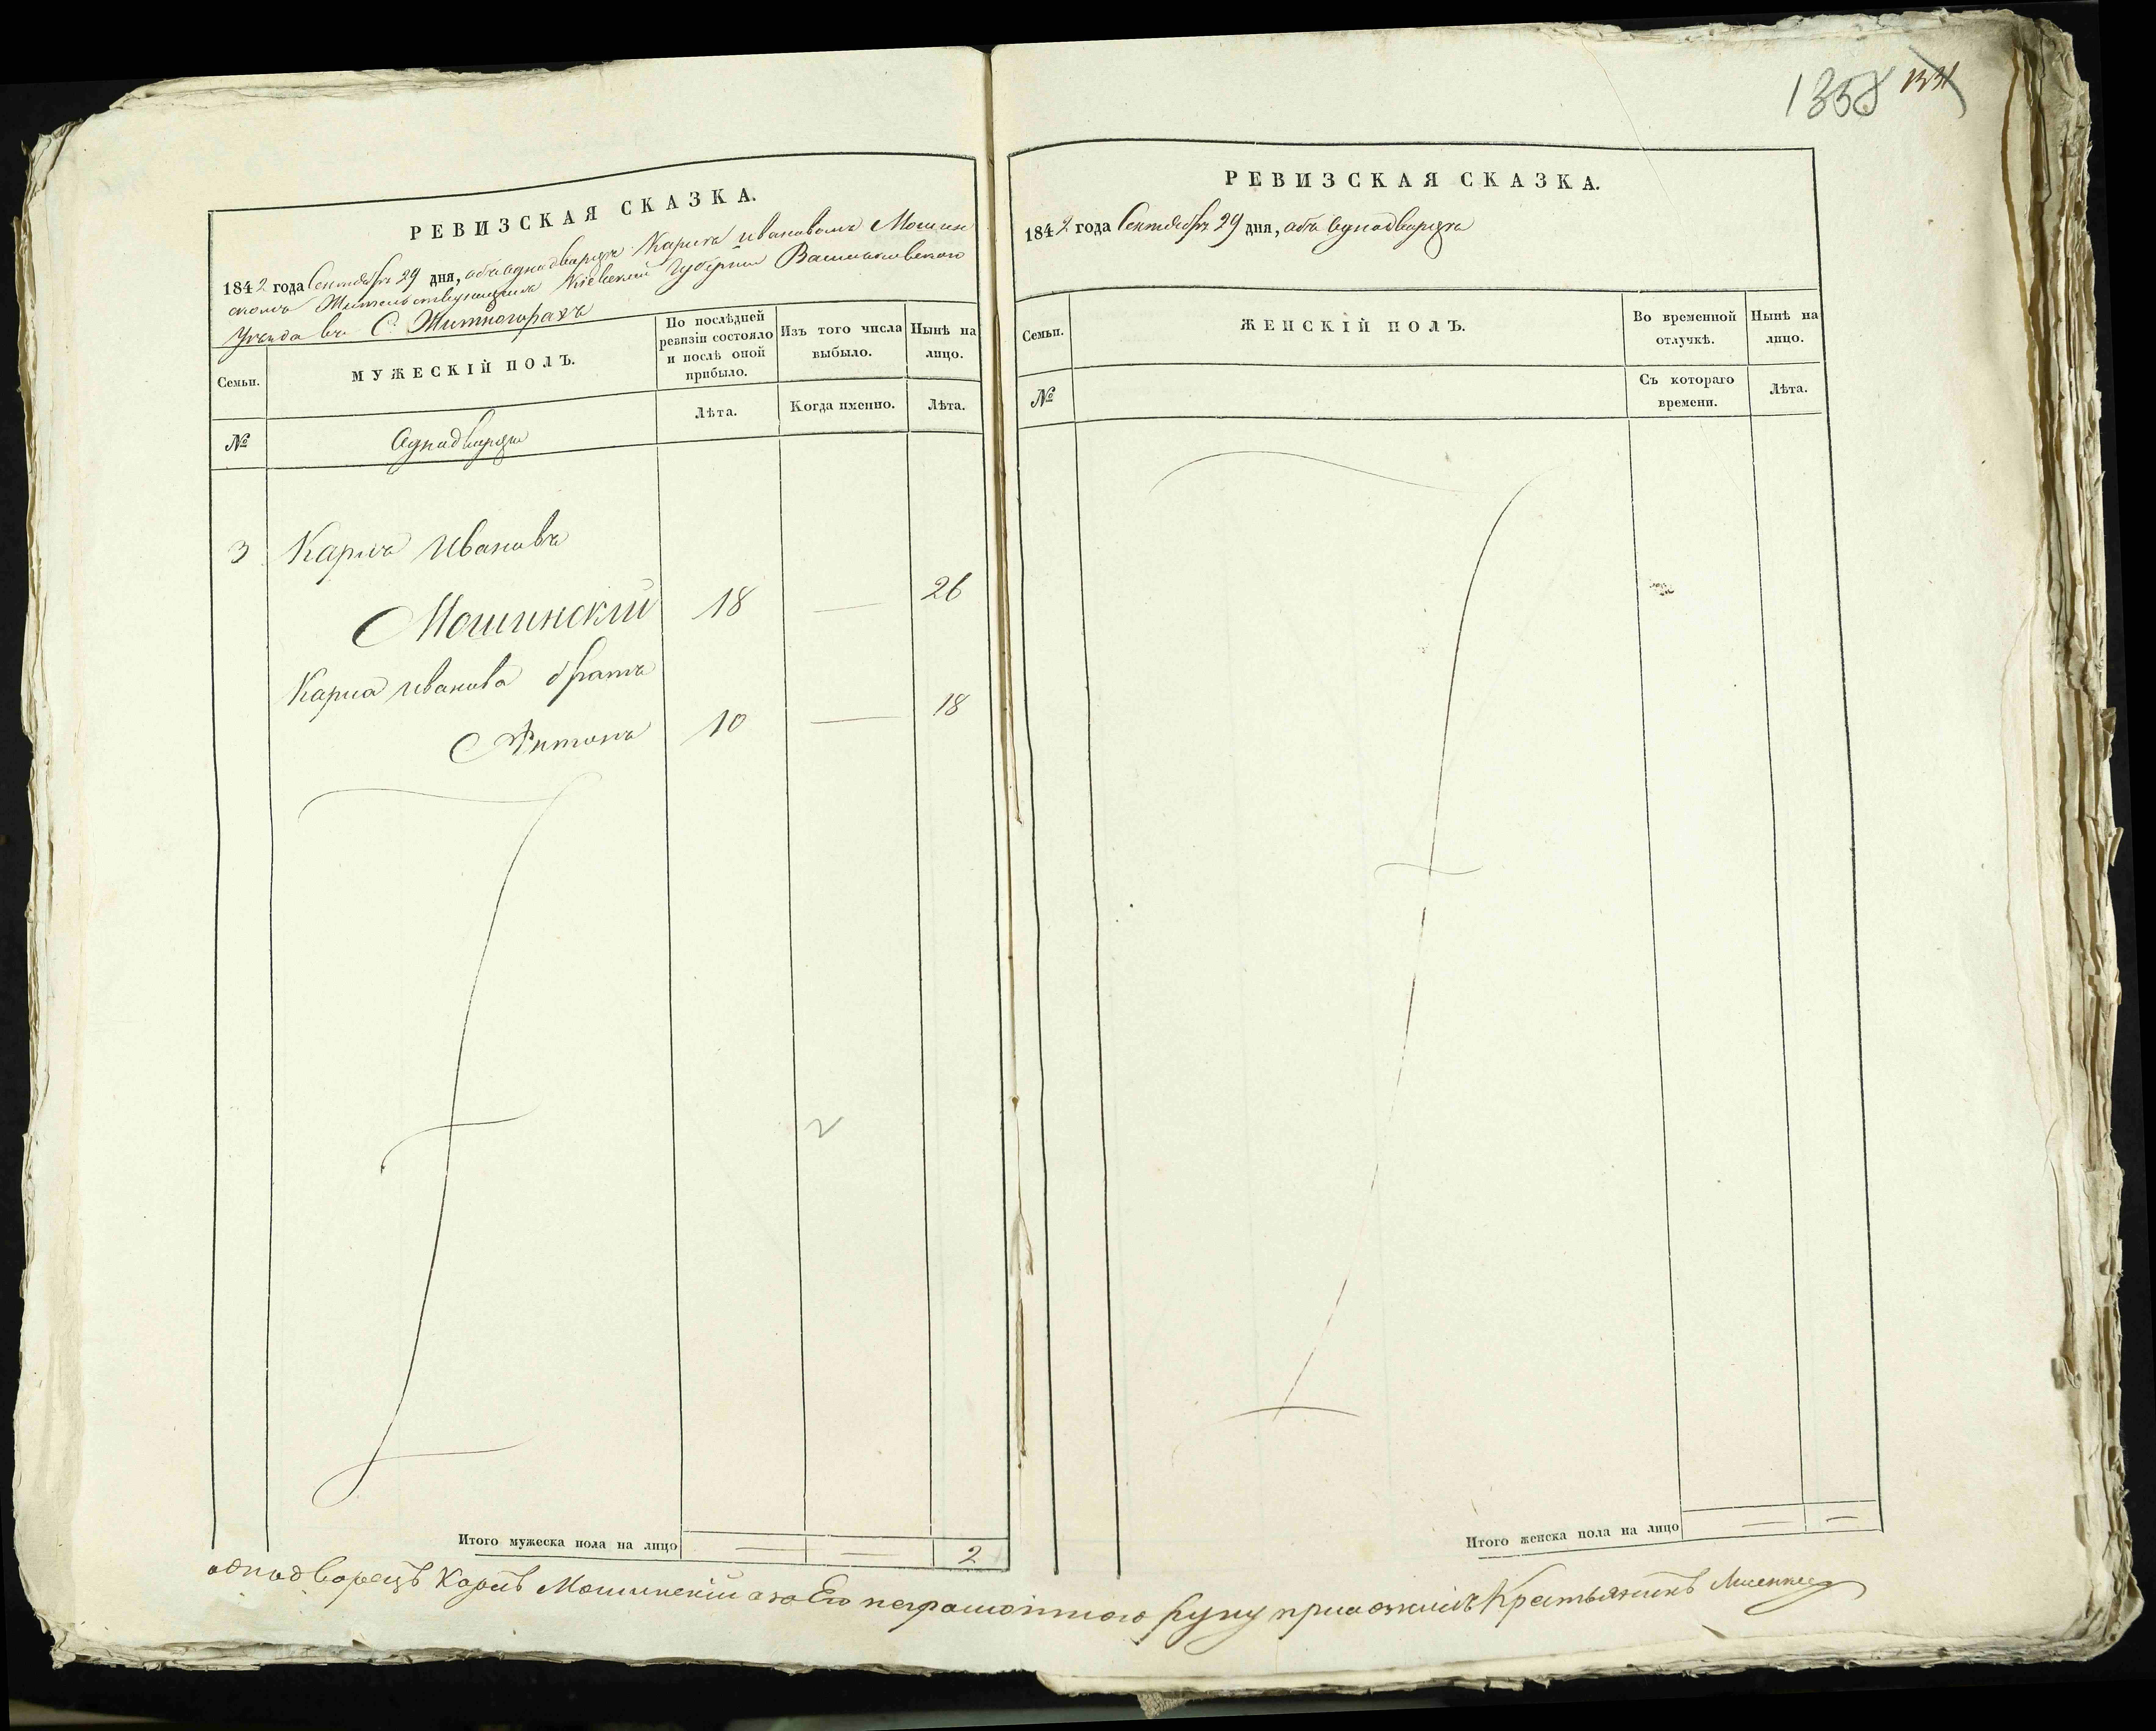 1358 1331
РЕВИЗСКАЯ СКАЗКА.
1842 года Сентября 29 дня, объ однодворцѣ Карпѣ Ивановѣ Мошин
скомъ Жительствующемъ Кіевской Губерніи Васильковскаго
Уѣзда въ С. Житногорахъ
Семьи.
МУЖЕСКІЙ ПОЛЪ.
По послѣдней ревизіи состояло и послѣ оной прибыло.
Изъ того числа выбыло.
Нынѣ на лицо.
№
Однодворцы
Лѣта.
Когда именно.
Лѣта.
3 Карпъ Ивановъ
Мошинскій 18 — 26
Карпа Иванова братъ
Антонъ 10 — 18
2
Итого мужеска пола на лицо — — 2
РЕВИЗСКАЯ СКАЗКА.
1842 года Сентября 29 дня, объ однодворцѣ
Семьи.
ЖЕНСКІЙ ПОЛЪ.
Во временной отлучкѣ.
Нынѣ на лицо.
№
Съ котораго времени.
Лѣта.
Итого женска пола на лицо — —
однодворецъ Карпъ Мошинскій а за Его неграмотного руку приложилъ